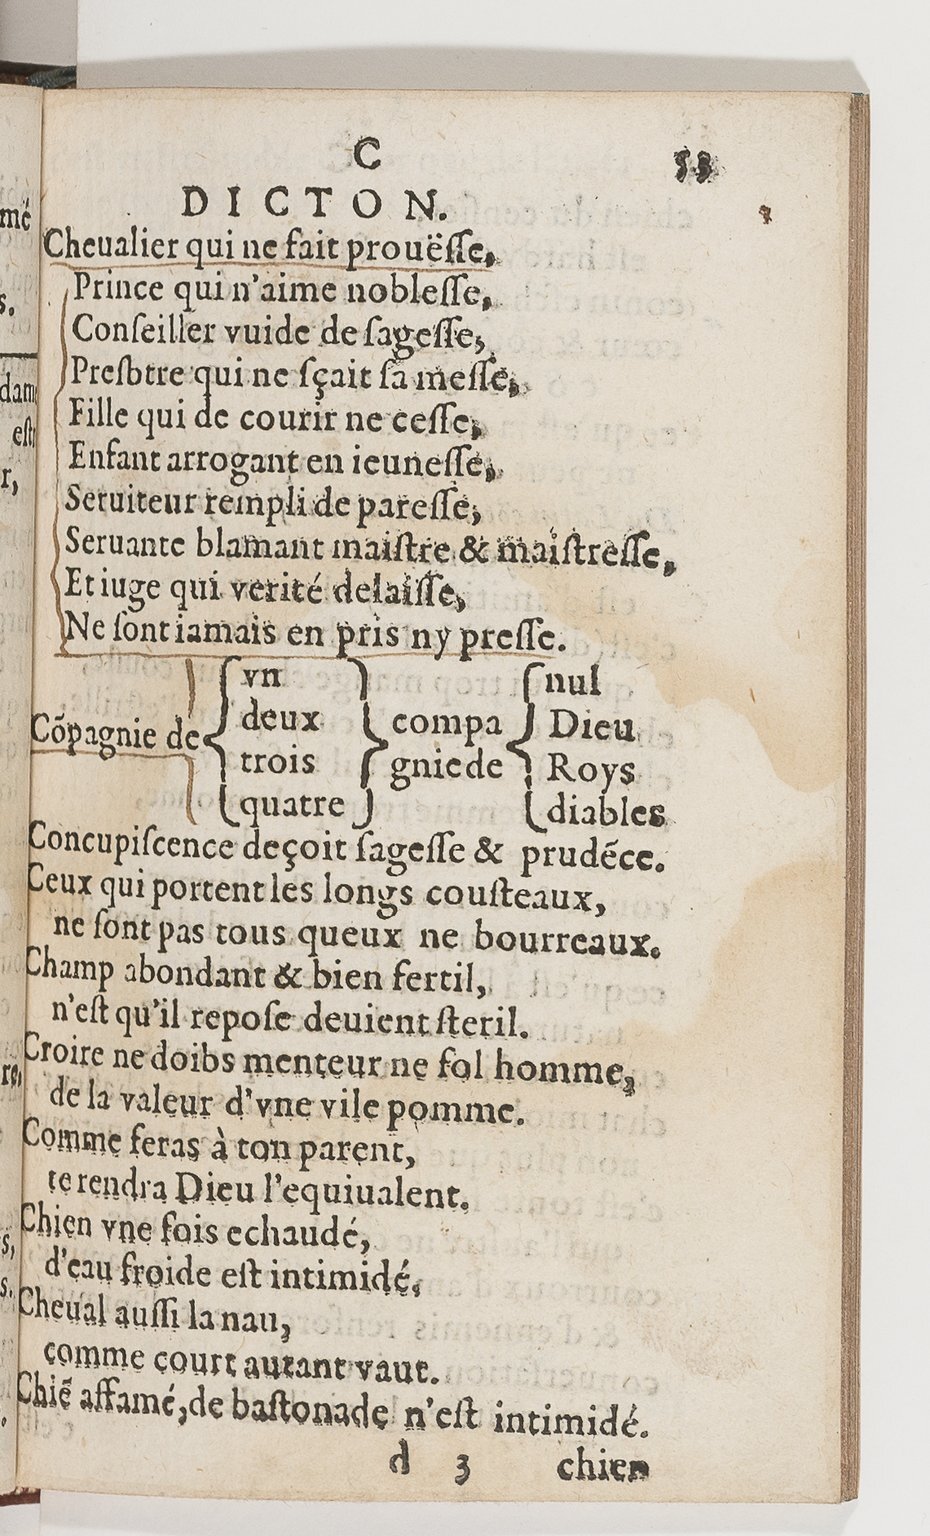 C 53
DICTON.
Cheualier qui ne fait prouëſſe,
Prince qui n'aime nobleſſe,
Conſeiller vuide de ſageſſe,
Preſbtre qui ne ſçait ſa meſſe,
Fille qui de courir ne ceſſe,
Enfant arrogant en ieuneſſe,
Seruiteur rempli de pareſſe,
Seruante blamant maiſtre & maiſtreſſe,
Et iuge qui verité delaiſſe,
Ne ſont iamais en pris ny preſſe.
vn nul
deux compa Dieu
Cõpagnie de
trois gnie de Roys
quatre diables
Concupiſcence deçoit ſageſſe & prudẽce.
Ceux qui portent les longs couſteaux,
ne ſont pas tous queux ne bourreaux.
Champ abondant & bien fertil,
n'eſt qu'il repoſe deuient ſteril.
Croire ne doibs menteur ne fol homme,
de la valeur d'vne vile pomme.
Comme feras à ton parent,
te rendra Dieu l'equiualent.
Chien vne fois echaudé,
d'eau froide eſt intimidé.
Cheual auſſi la nau,
comme court autant vaut.
Chiẽ affamé, de baſtonade n'eſt intimidé.
d 3 chien